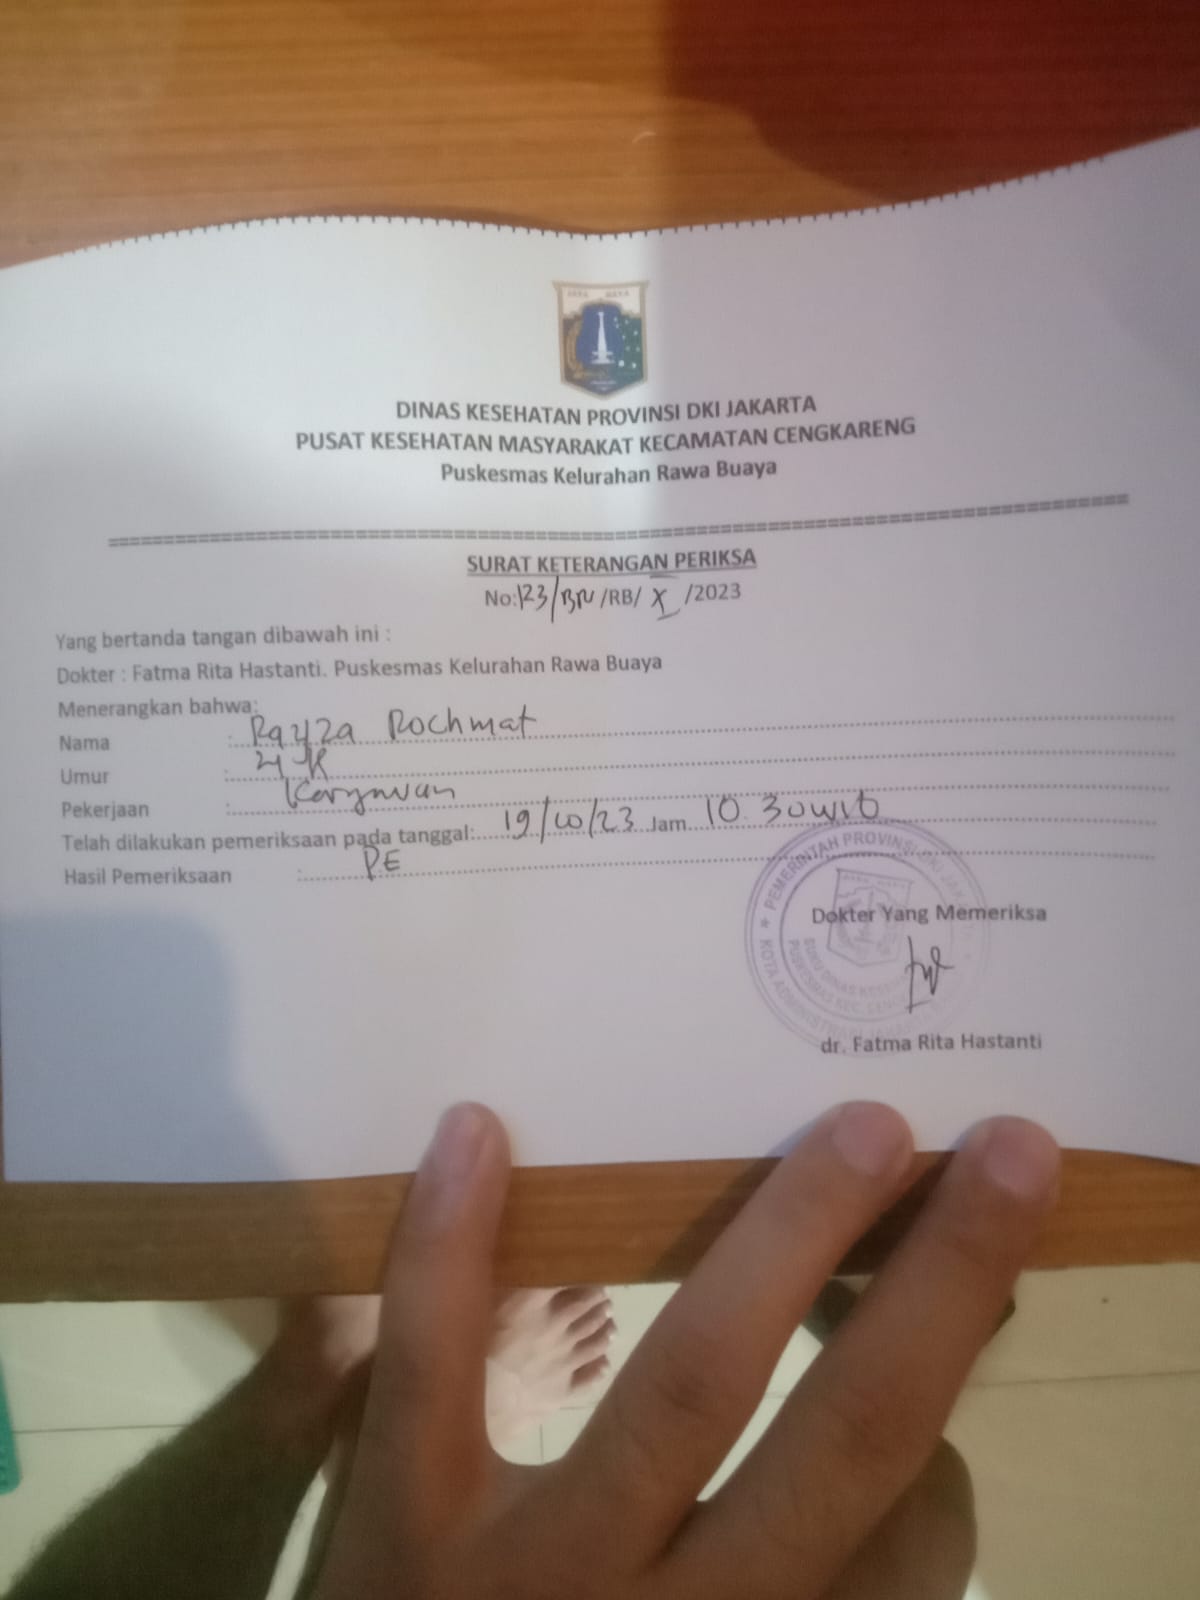 JAYA RAYA
DINAS KESEHATAN PROVINSI DKI JAKARTA
PUSAT KESEHATAN MASYARAKAT KECAMATAN CENGKARENG
Puskesmas Kelurahan Rawa Buaya
SURAT KETERANGAN PERIKSA
No: 123/BP/RB/ X /2023
Yang bertanda tangan dibawah ini :
Dokter : Fatma Rita Hastanti. Puskesmas Kelurahan Rawa Buaya
Menerangkan bahwa:
Nama : Rayza Rochmat
Umur :
Pekerjaan : Karyawan
Telah dilakukan pemeriksaan pada tanggal: 19/10/23 Jam 10.30 WIB
Hasil Pemeriksaan :
PEMERINTAH PROVINSI DKI JAKARTA
KOTA ADMINISTRASI
SUKU DINAS KESEHATAN
PUSKESMAS KEC.
Dokter Yang Memeriksa
dr. Fatma Rita Hastanti